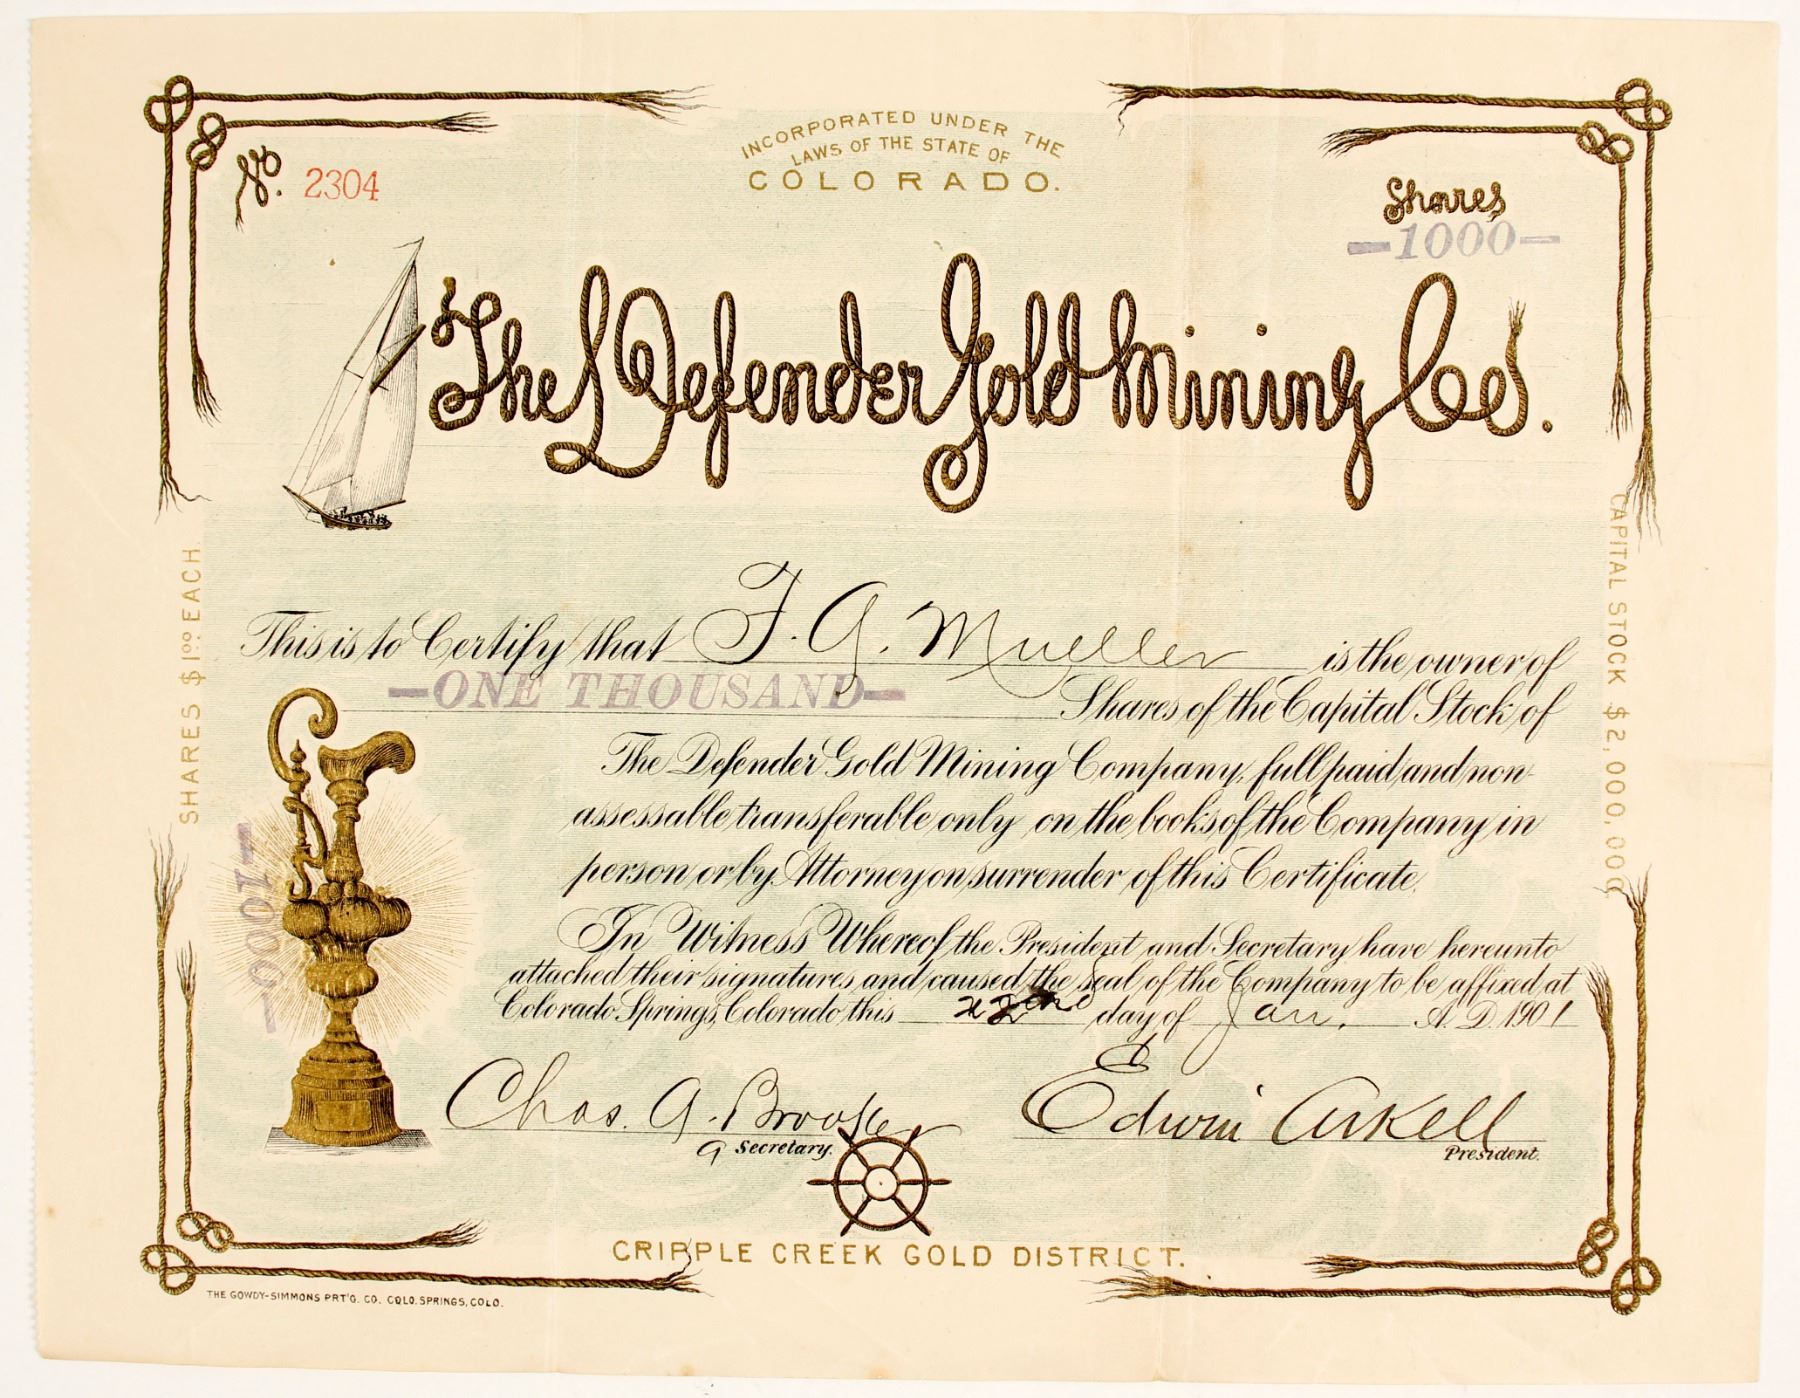 INCORPORATED UNDER THE
LAWS OF THE STATE OF
COLORADO.
No. 2304
Shares
—1000—
The Defender Gold Mining Co.
SHARES $1.00 EACH
CAPITAL STOCK $2,000,000
This is to Certify that F. G. Mueller is the owner of
—ONE THOUSAND— Shares of the Capital Stock of
The Defender Gold Mining Company, full paid and non-
assessable transferable only on the books of the Company in
person or by Attorney on surrender of this Certificate.
—1000—
In Witness Whereof the President and Secretary have hereunto
attached their signatures and caused the seal of the Company to be affixed at
Colorado Springs, Colorado this 22nd day of Jan. A.D. 1901
Chas. G. Brooke Edwin Arkell
Secretary. President.
CRIPPLE CREEK GOLD DISTRICT.
THE GOWDY-SIMMONS PRT'G. CO. COLO. SPRINGS, COLO.